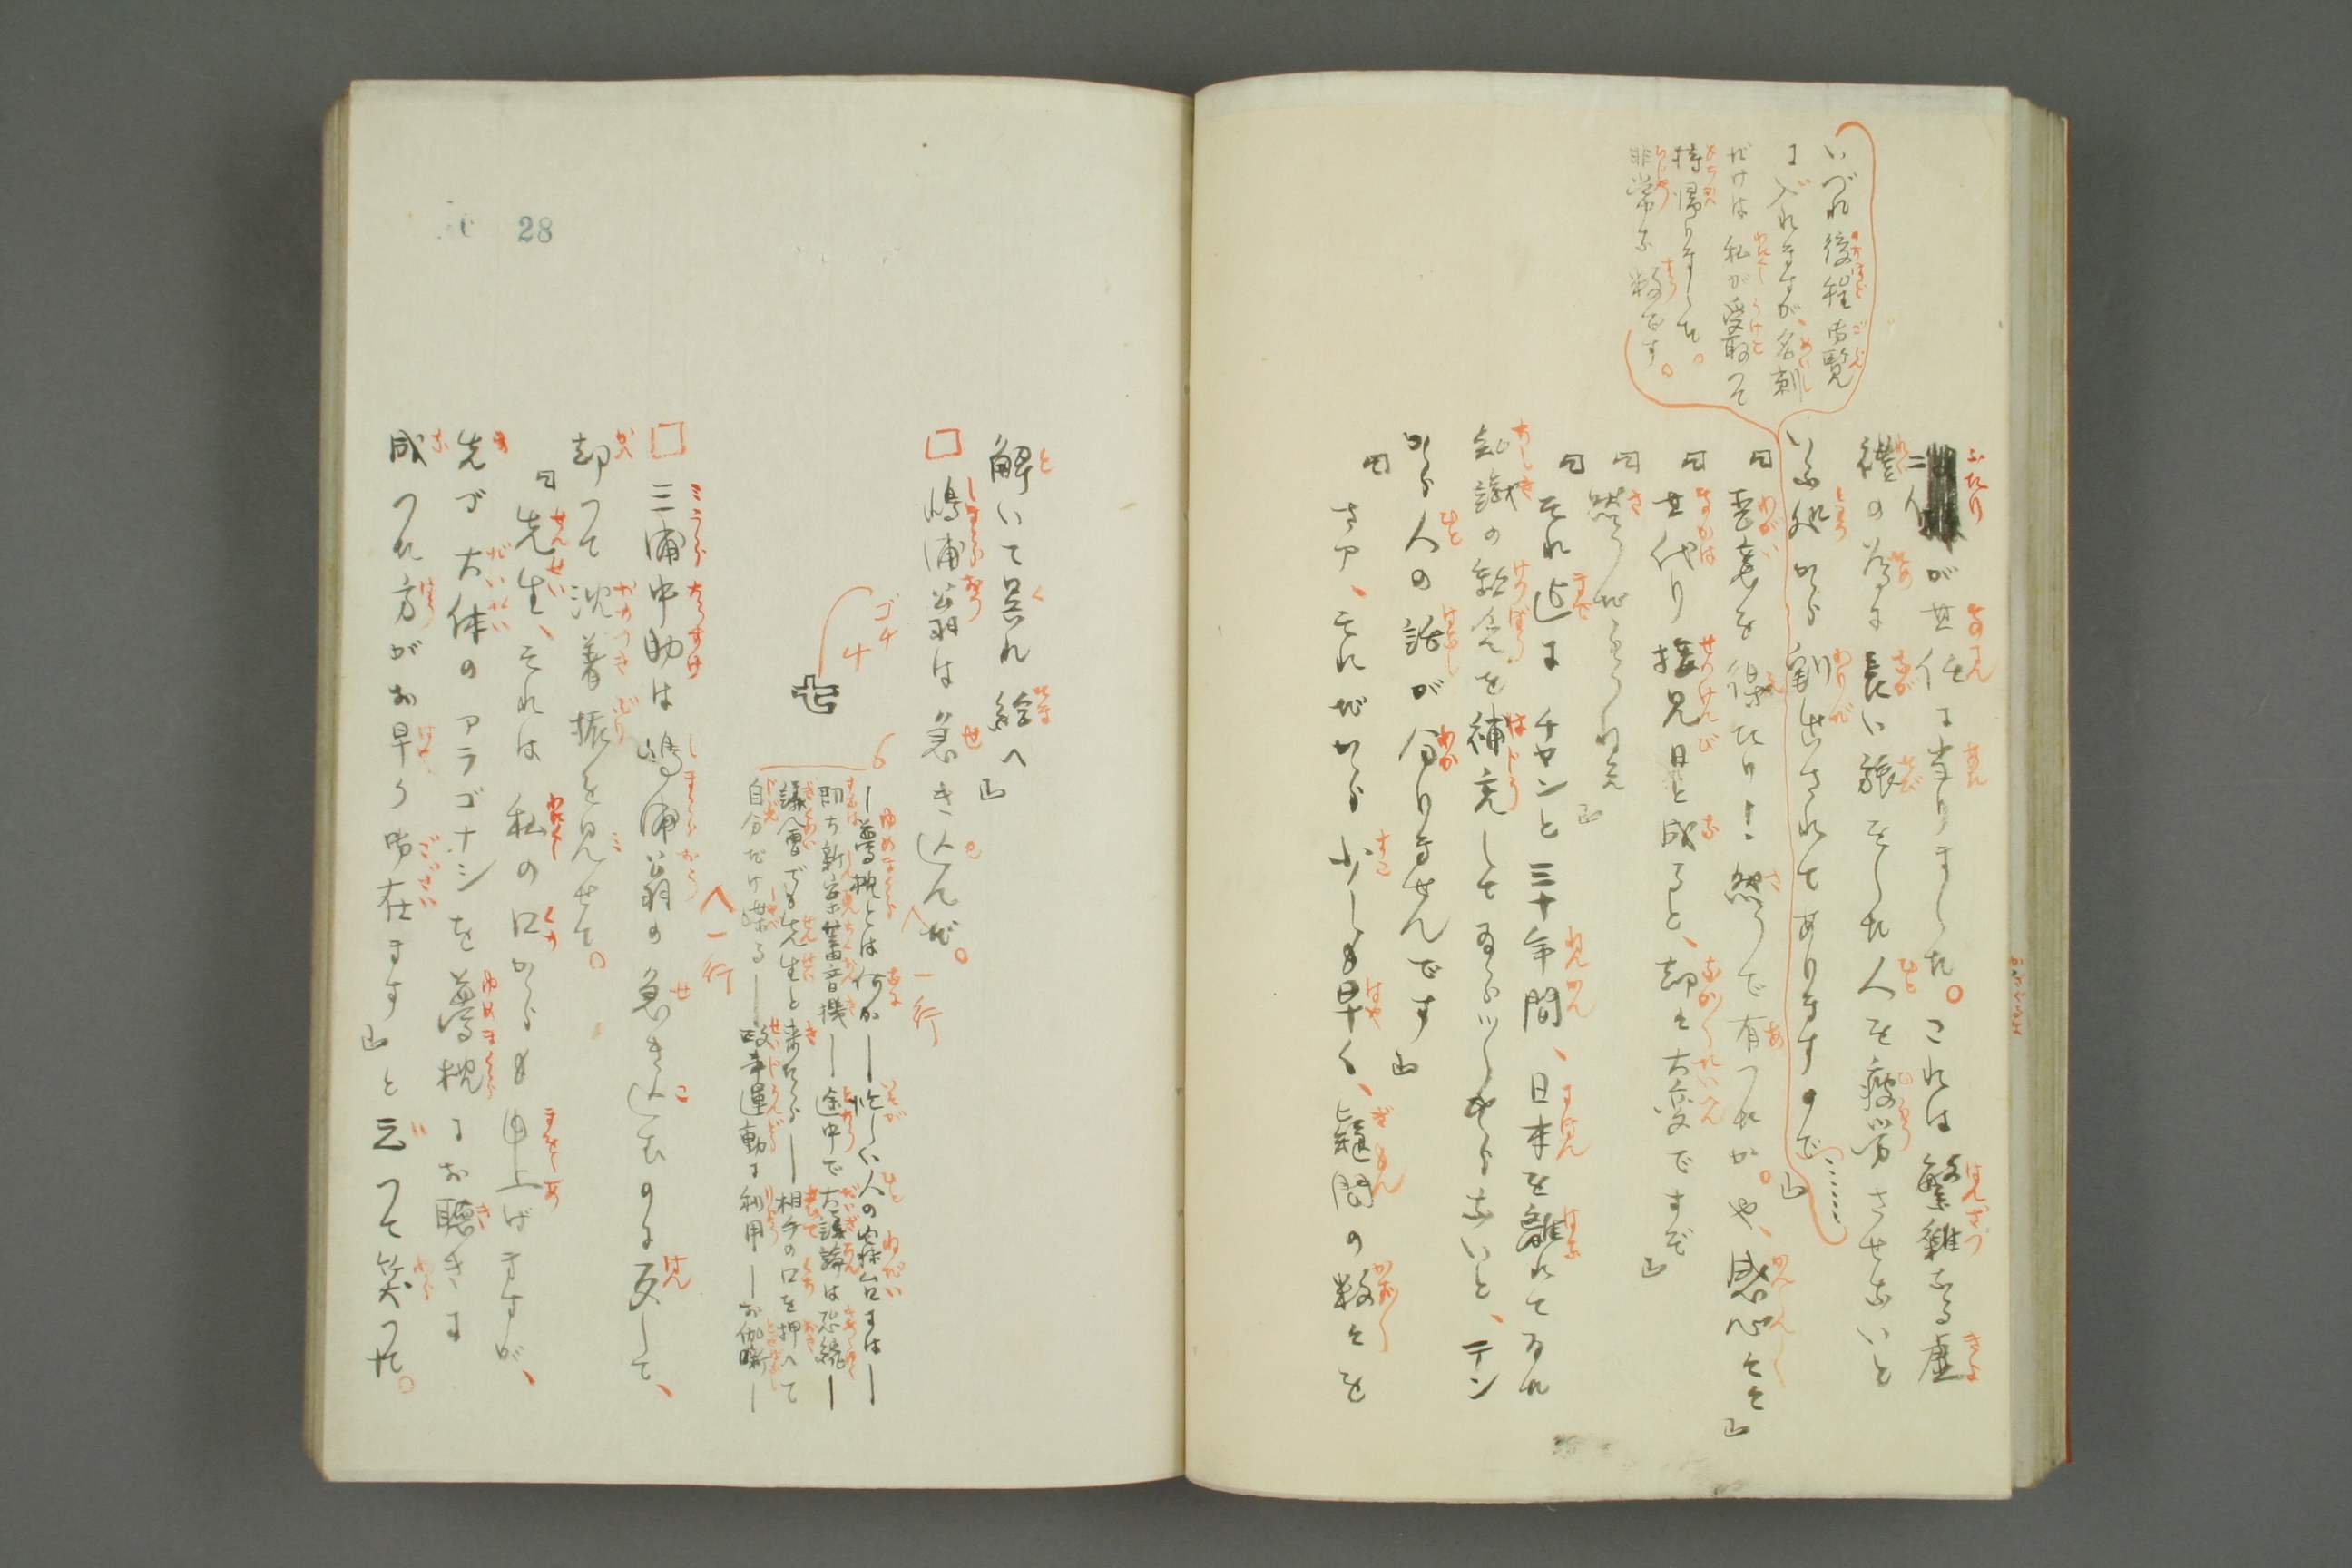 二人が其任に当りました。これは繁雑なる虚
礼の為に長い旅をした人を疲労させないと
いふ処から割出されてありますので……」
いづれ後程御覧
に入れますが、名刺
だけは私が受取つて
持帰りました。
非常な数です。
「吾意を得たり！然うで有つたか。や、感心々々」
「其代り接見日と成ると、却々大変ですぞ」
「然うだらうねえ」
「それ迄にチャンと三十年間、日本を離れてゐた
知識の欠乏を補充してゐらツしやらないと、テン
から人の話が分りませんです」
「さア、それだから少しも早く、疑問の数々を
28
解いて呉れ給へ」
□嶋浦公翁は急き込んだ。
一行
ゴチ
4
七
6
―夢枕とは何か―忙しい人の寝台には―
即ち新案蓄音機―途中で大議論は恐縮―
議会でも先生と来たら―相手の口を押へて
自分だけ喋る―政事運動に利用―お伽噺―
一行
□三浦中助は嶋浦公翁の急き込むのに反して、
却つて沈着振を見せて。
「先生、それは私の口からも申上げますが、
先づ大体のアラゴナシを夢枕にお聴きに
成つた方がお早う御在ます」と云つて笑つた。